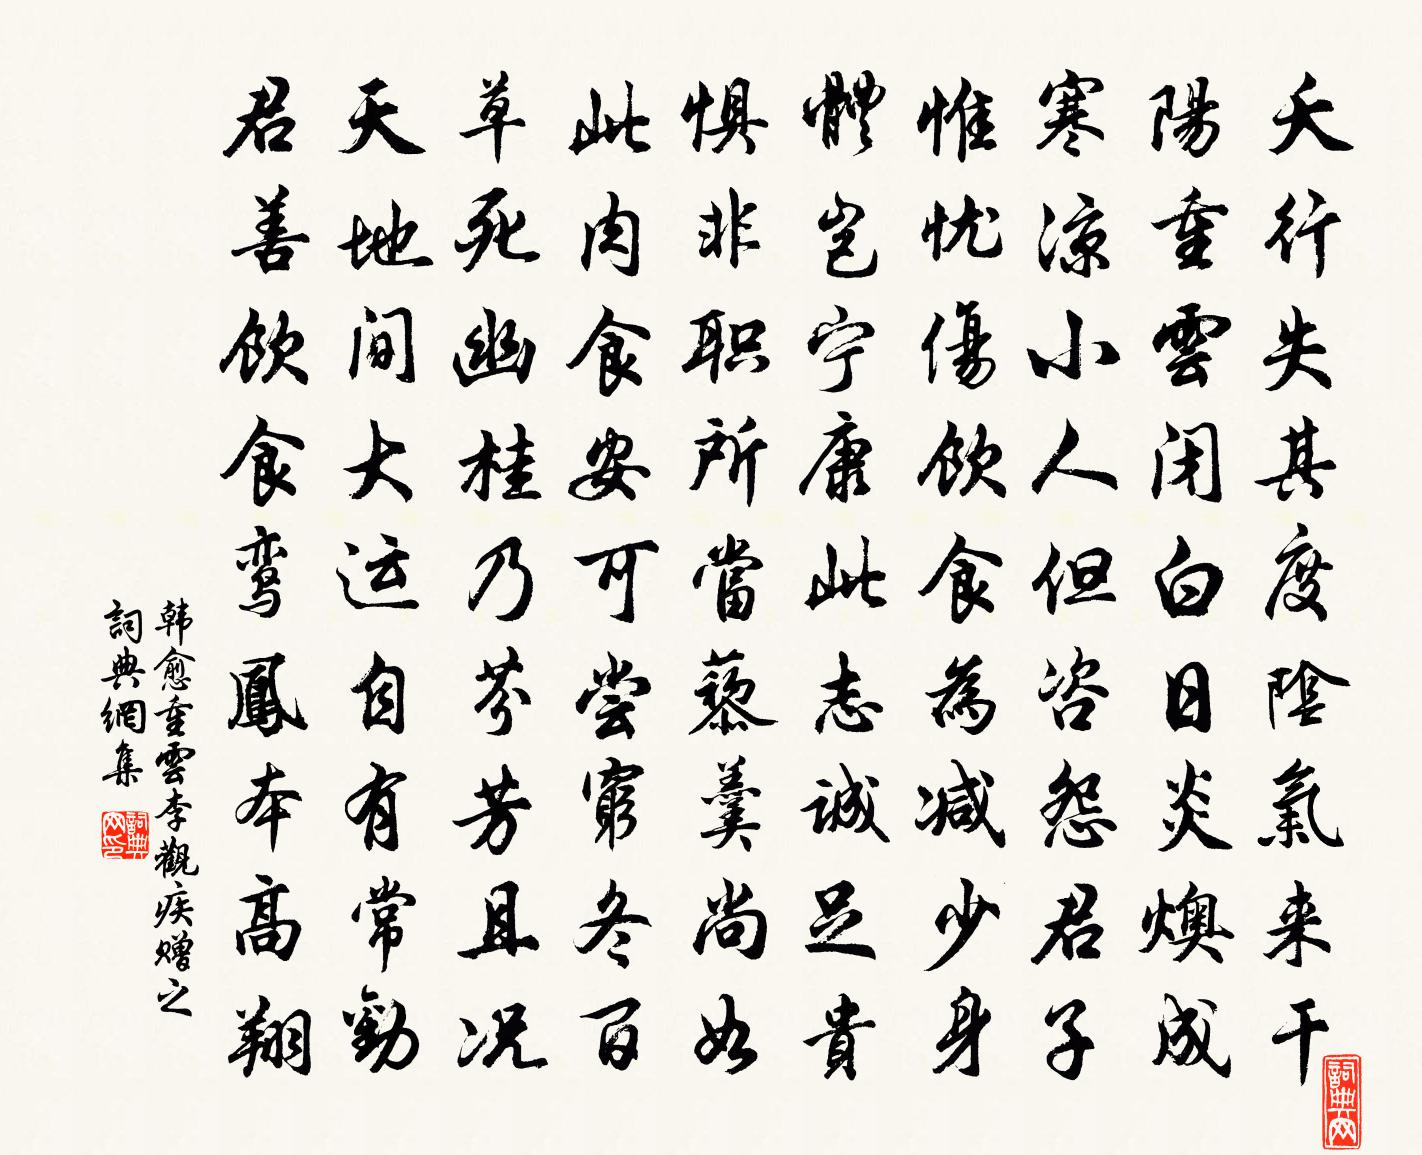 天行失其度陰氣来干
陽重雲闭白日炎燠成
寒涼小人但咨怨君子
惟忧傷飲食為减少身
體岂宁康此志誠足貴
惧非职所當藜羹尚如
此肉食安可尝窮冬百
草死幽桂乃芬芳且况
天地间大运自有常勸
君善飲食鸾鳳本高翔
韩愈重雲李觀疾赠之
詞典網集
詞典网印
詞典网